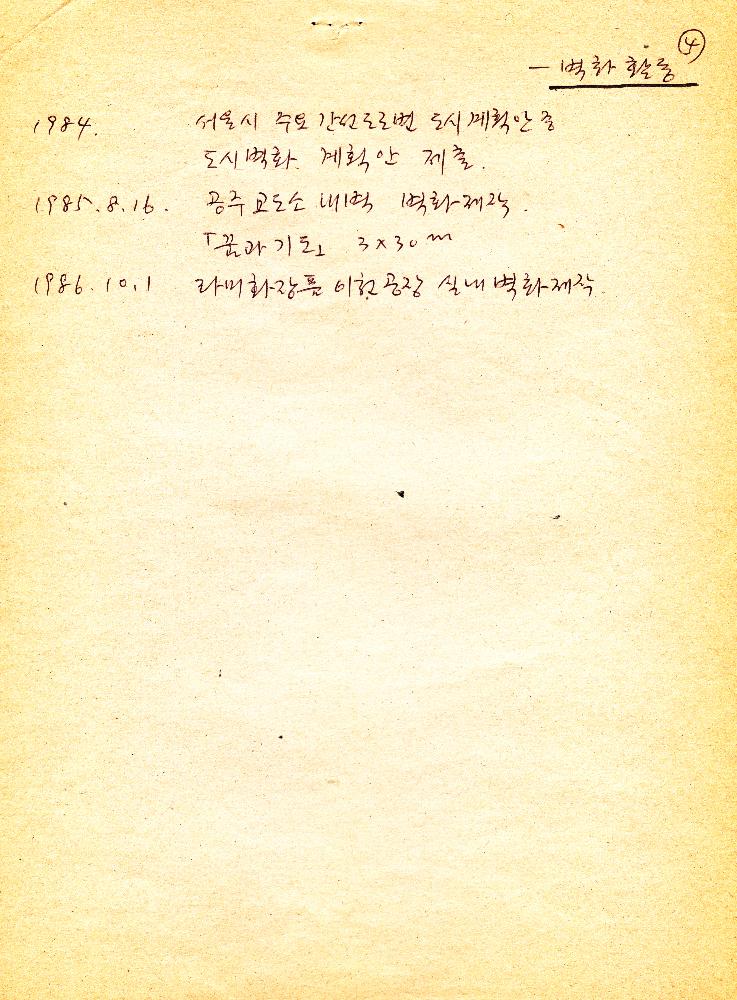 ④
— 벽화 활동
1984. 서울시 주요 간선도로변 도시계획안 중
도시벽화 계획안 제출.
1985.8.16. 공주교도소 내벽 벽화제작.
「꿈과기도」 3×30m
1986.10.1 라미화장품 이천공장 실내벽화제작.